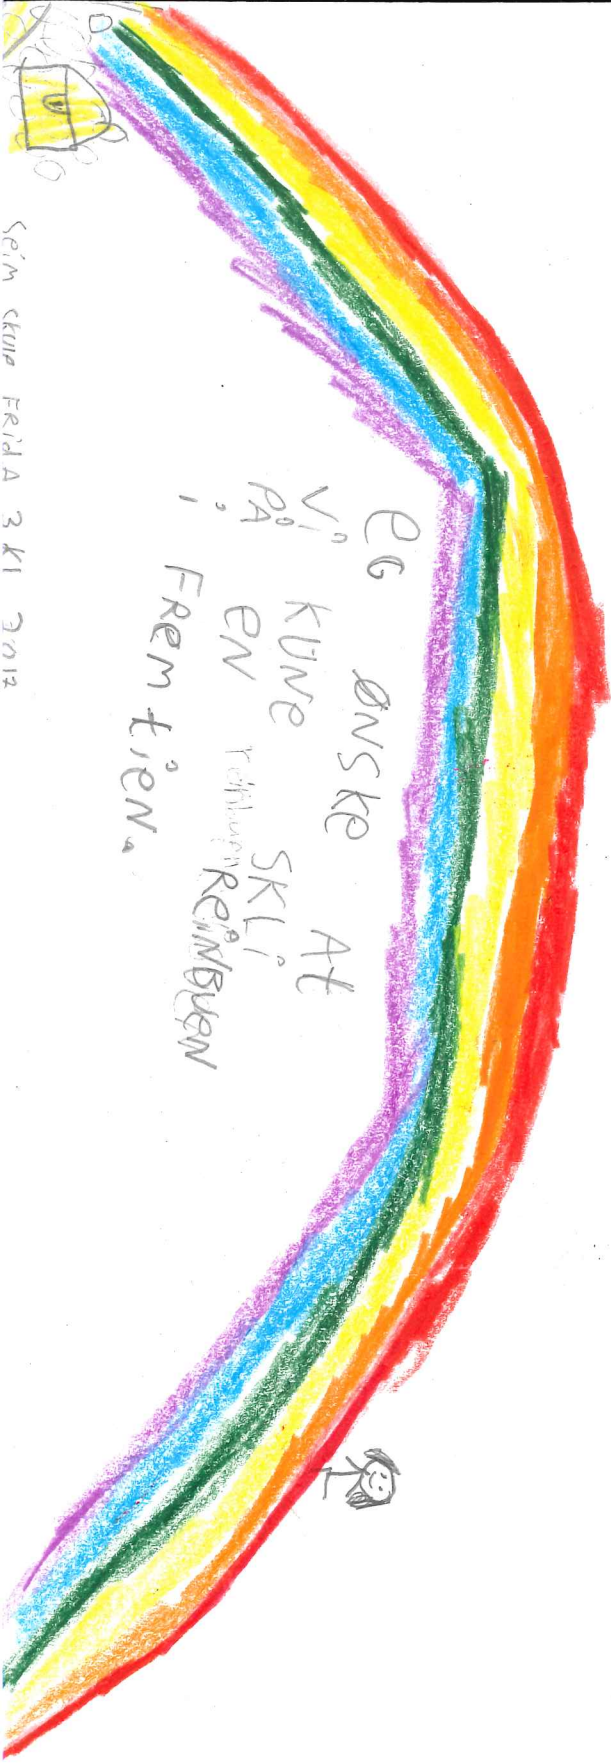 eG ØNSKe At
Vi KUNe SKLi
PÅ EN REiNBUEN
i FRemtieN.
Seim skule FRidA 3 Kl 2017